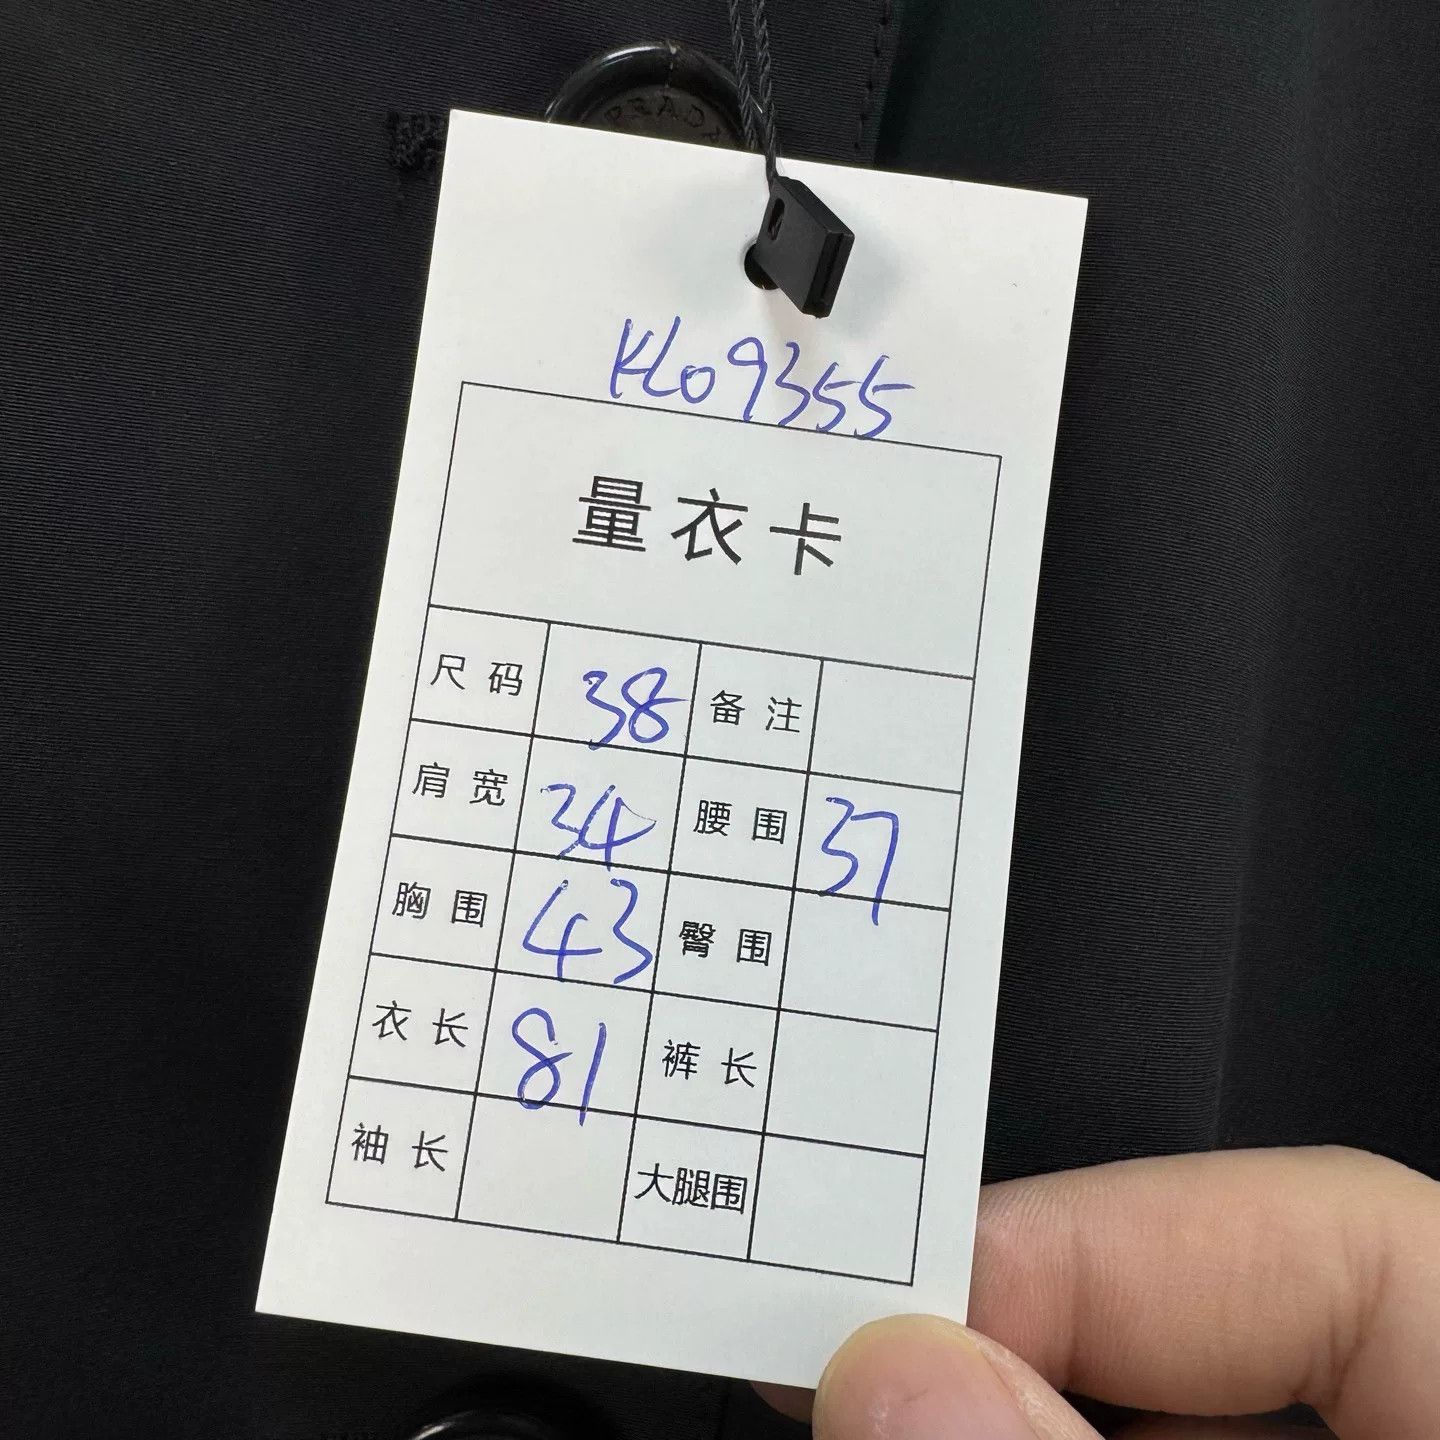 PRADA
KL09355
量衣卡
尺码 38 备注
肩宽 34 腰围 37
胸围 43 臀围
衣长 81 裤长
袖长 大腿围